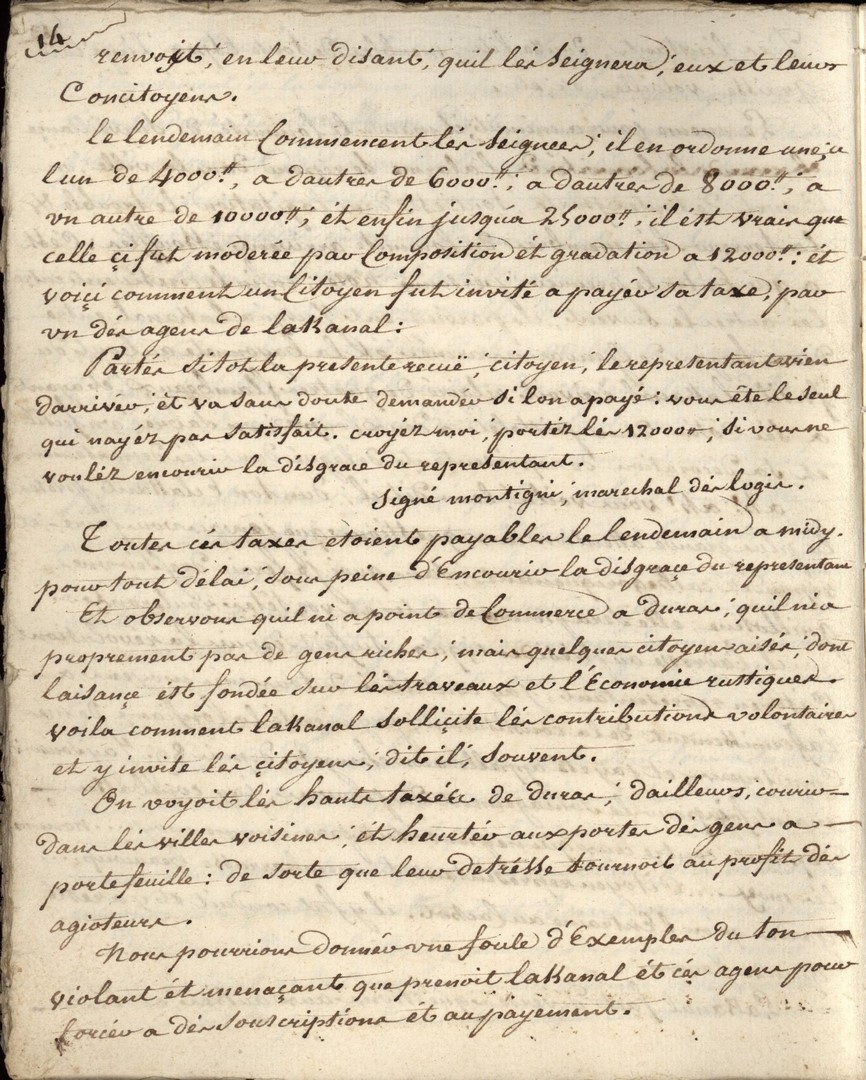 14
renvoÿt; en leur disant, quil lés seignera; eux et leurs
Concitoyens.
le lendemain Commencent lés seignées; il en ordonne une, a
lun de 4000tt, a dautres de 6000tt; a dautres de 8000tt; a
vn autre de 10000tt; ét enfin jusqu'a 25000tt; il ést vrais que
celle çi fut moderée par Composition ét gradation a 12000tt: ét
voiçi comment un Citoyen fut invité a payér sa taxe; par
vn dés agens de laKanal:
Partés sitot la presente recuë; citoyen; le representant vien
darrivér; ét va sans doute demandér si lon a payé: vous éte le seul
qui nayéz pas satisfait. croyez moi; portéz lés 12000tt; si vous ne
vouléz encourir la disgrace du representant.
Signé montigni; marechal dés logis.
Toutes cés taxes étoient payables le lendemain a midy.
pour tout délai; sous peine d'Encourir la disgraçe du representant
Et observons quil ni a point de Commerce a duras; quil ni a
proprement pas de gens riches; mais quelques citoyens aisés; dont
laisançe ést fondée sur lés travaux et l'économie rustiques.
voila comment laKanal solliçite lés contributions volontaires
et y invite lés çitoyens; dit il; souvent.
On voyoit lés hauts taxés de duras; dailleurs; courir
dans lés villes voisines; ét heurtér aux portes dés gens a
porte feuille: de sorte que leur detrésse tournoit au profit dés
agioteurs.
Nous pourrions donnér vne foule d'Exemples du ton
violant ét menaçant que prenoit laKanal ét cés agens pour
forcér a dés souscriptions ét au payement.